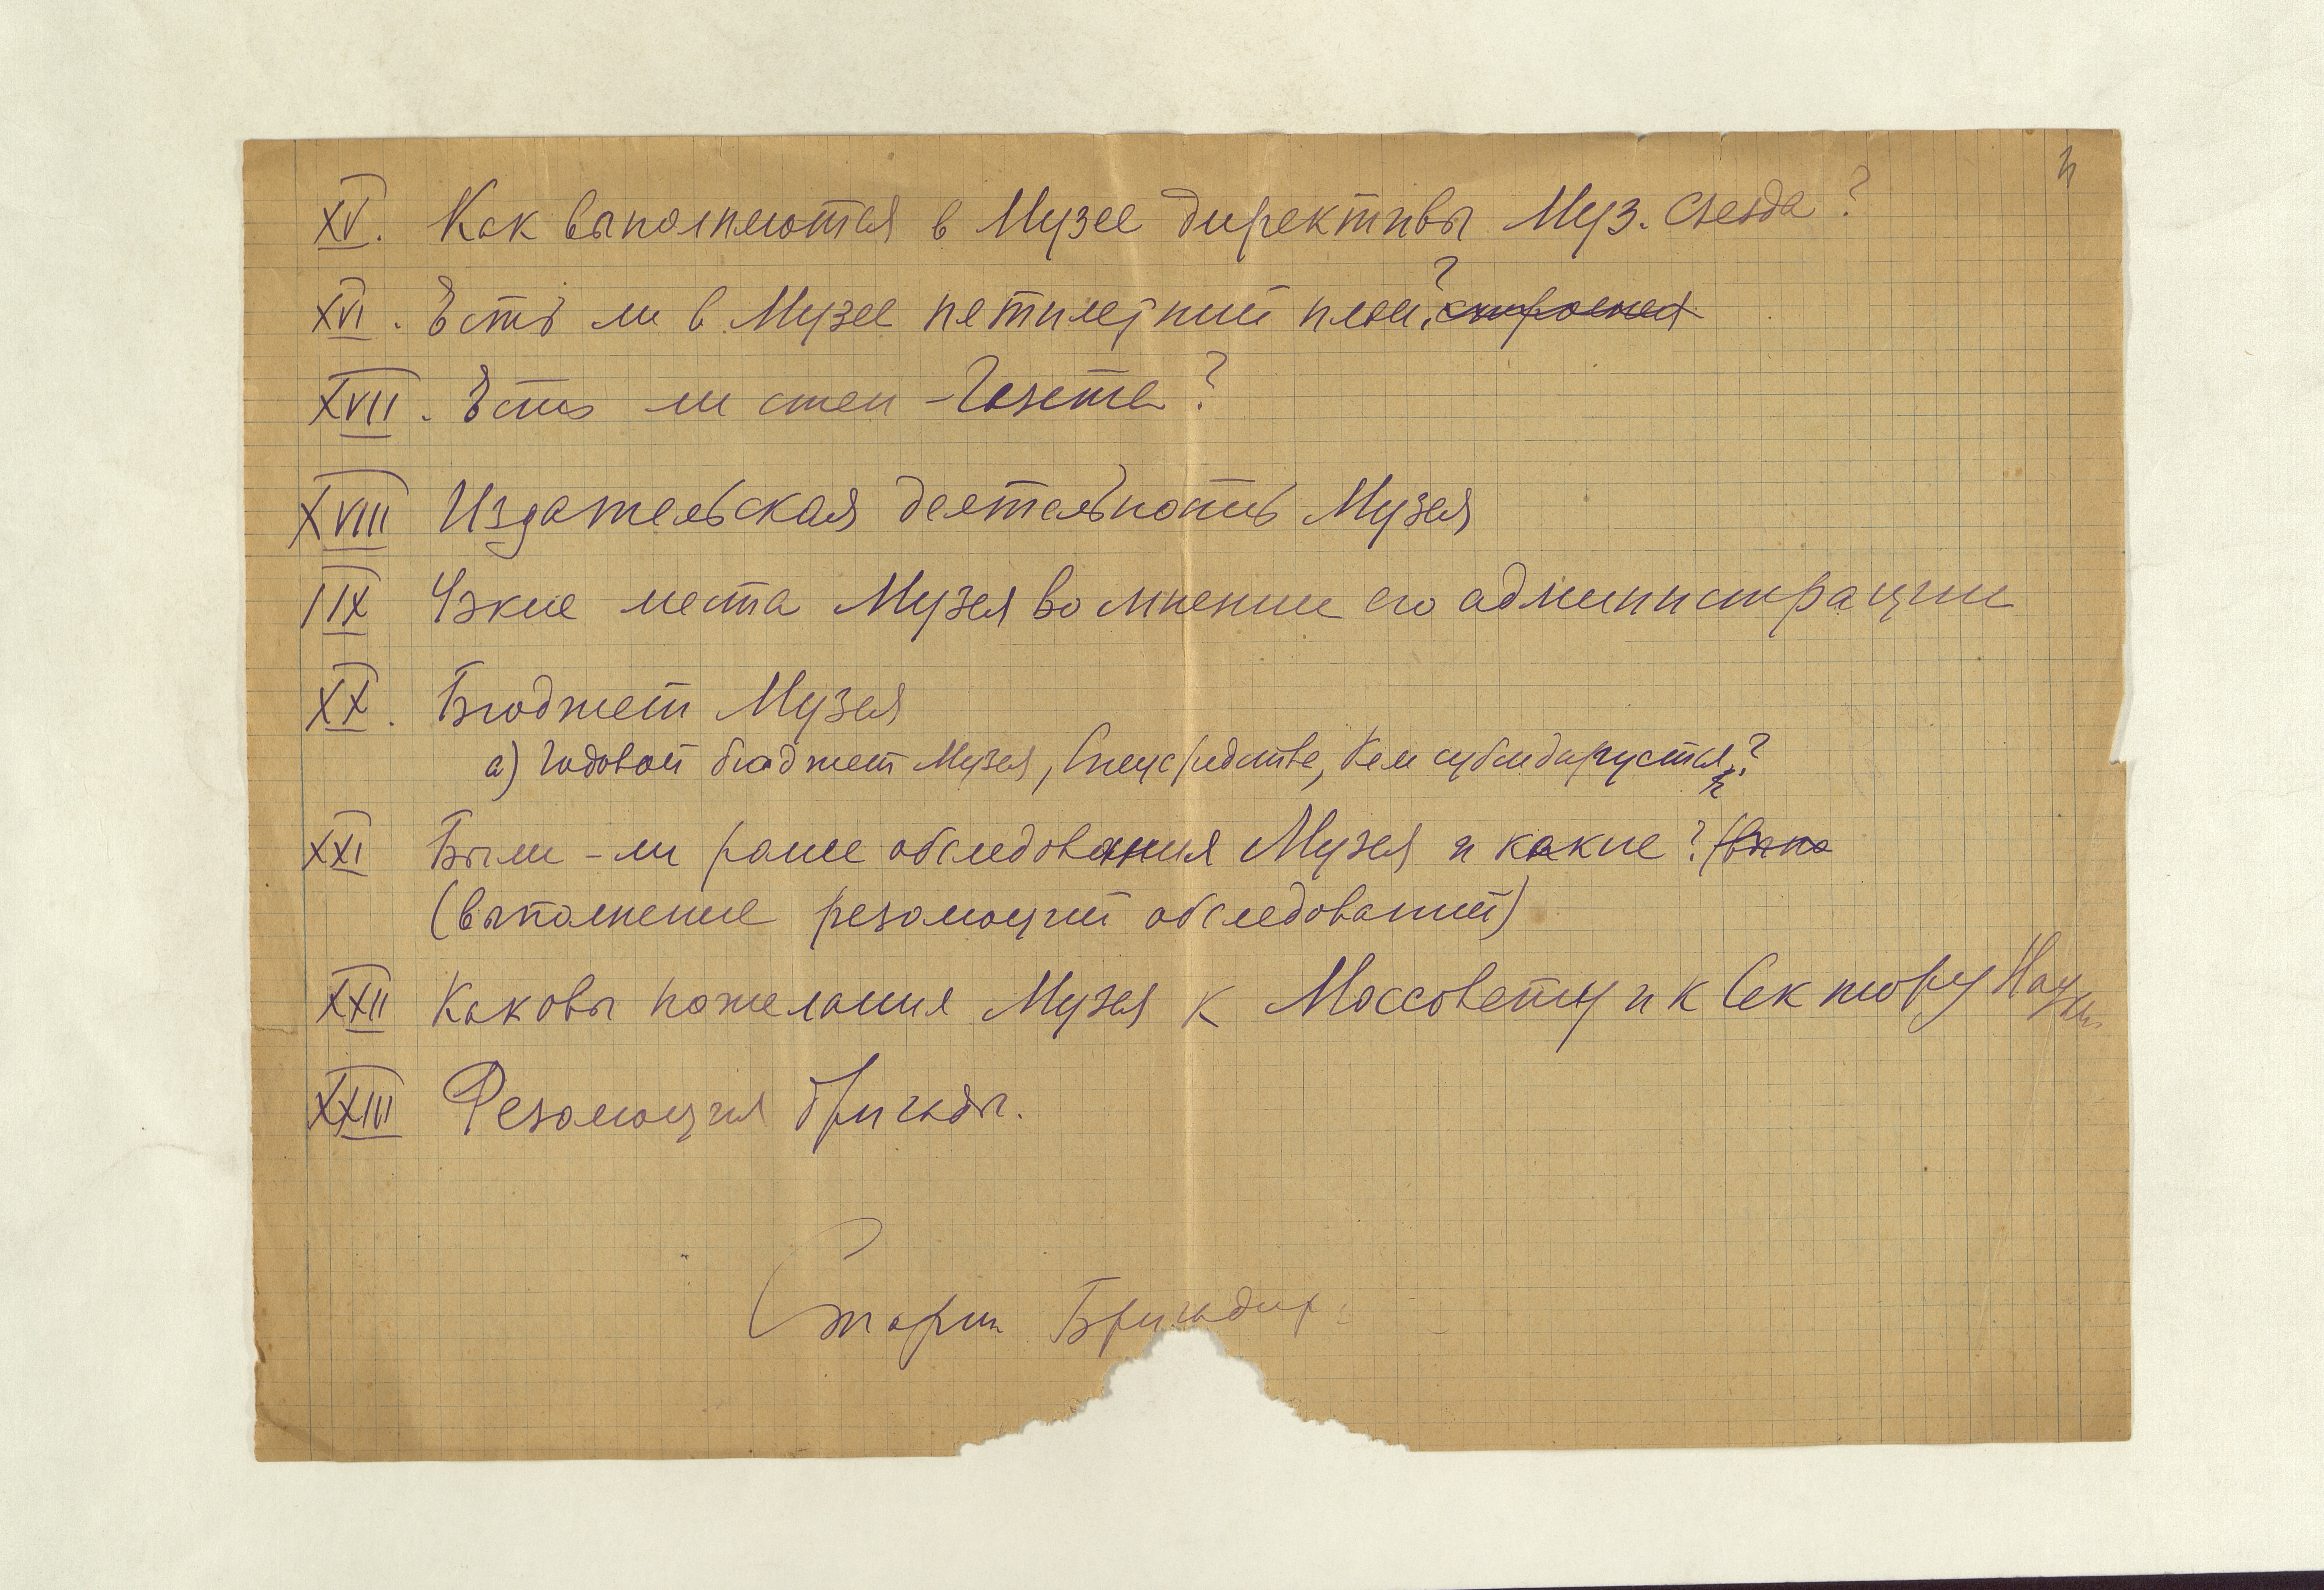 XV. Как выполняются в Музее директивы Муз. съезда?
XVI. Есть ли в Музее пятилетний план?
XVII. Есть ли стен-газета?
XVIII Издательская деятельность Музея
IIX Узкие места Музея во мнении его администрации
XX. Бюджет Музея
а) Годовой бюджет Музея, Спецсредства, Кем субсидируется?
XXI Были-ли ранее обследования Музея и какие?
(выполнение резолюций обследований)
XXII Каковы пожелания Музея к Моссовету и к Сектору Науки
XXIII Резолюция бригады.
Старш Бригадир: